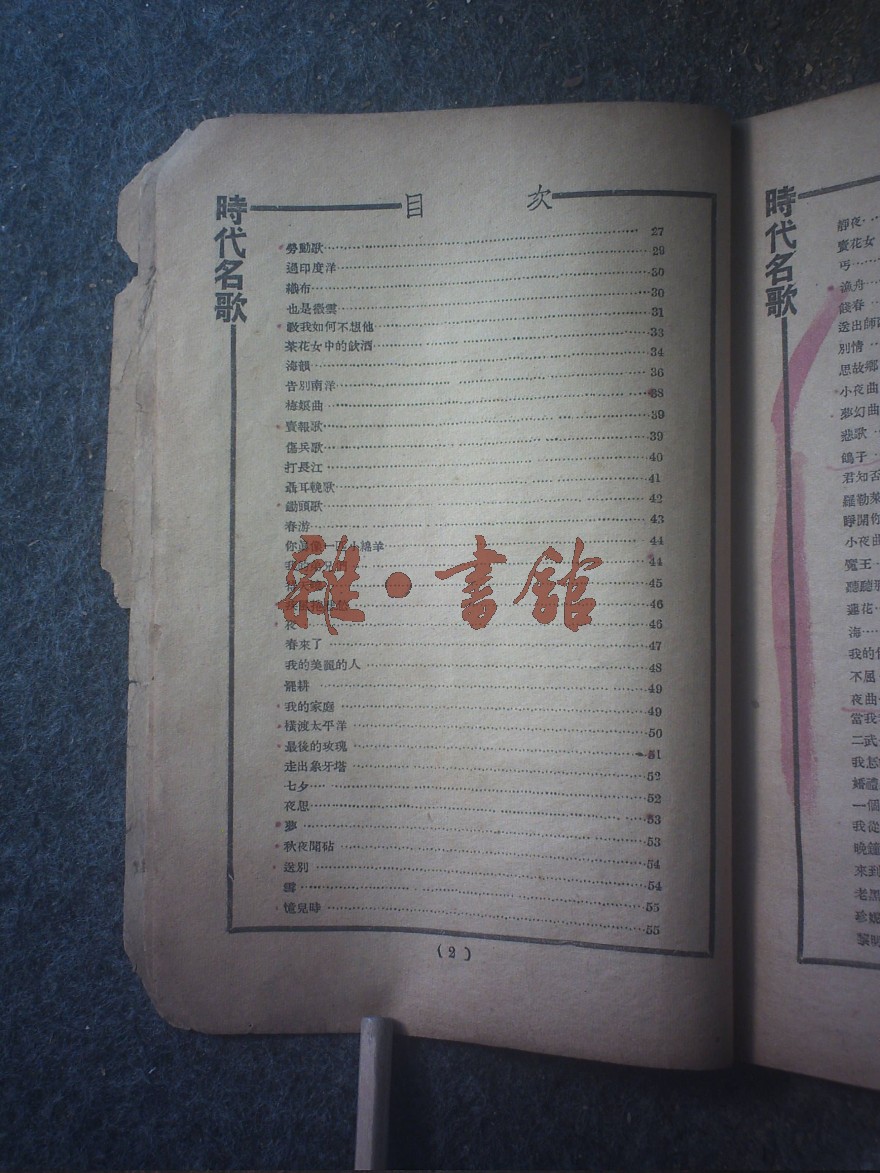 時代名歌
目 次
勞動歌 27
過印度洋 29
織布 30
也是微雲 30
敎我如何不想他 31
茶花女中的飲酒 33
海韻 34
告別南洋 36
梅娘曲 38
賣報歌 39
傷兵歌 39
打長江 40
聶耳輓歌 41
鋤頭歌 42
春游 43
像一匹小綿羊 44
44
45
46
夜 46
春來了 47
我的美麗的人 48
罷耕 49
我的家庭 49
橫渡太平洋 50
最後的玫瑰 51
走出象牙塔 52
七夕 52
夜思 53
夢 53
秋夜聞砧 54
送別 54
55
憶兒時 55
(2)
雜·書館
時代名歌
靜夜
賣花女
丐
漁舟
餞春
送出師
別情
思故鄉
小夜曲
夢幻曲
悲歌
鴿子
君知否
羅勒萊
睜開你
小夜曲
魔王
聽聽
蓮花
海
我的
不屈
夜曲
當我
二武
我怎
婚禮
一個
我從
晚鐘
來到
老黑
珍妮
黎明